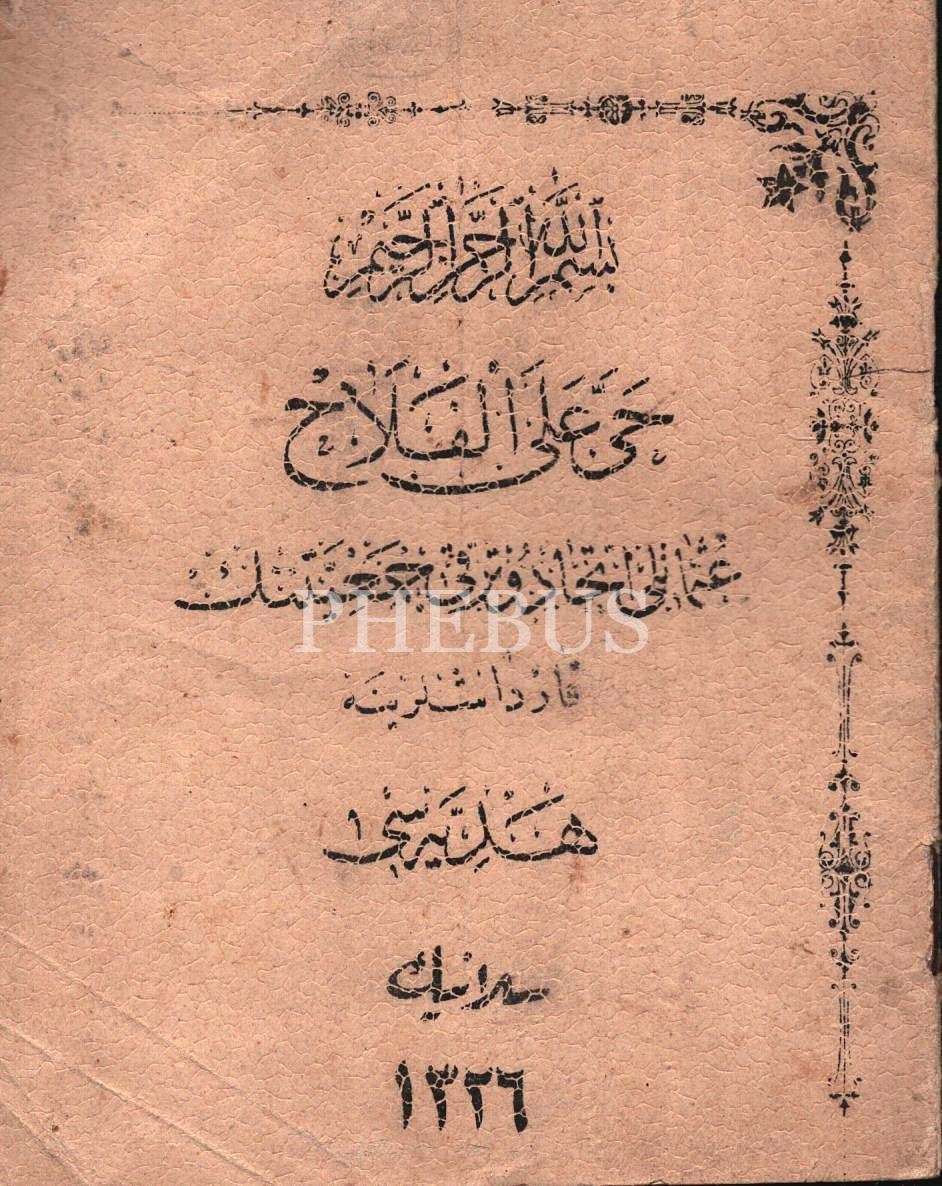 بسم الله الرحمن الرحيم
حَیَّ عَلَی الْفَلَاحْ
عثمانلی اتحاد و ترقی جمعیتنك
PHEBUS
قارداشلرینه
هدیه سی ۱
سلانیك
۱۳۲۶